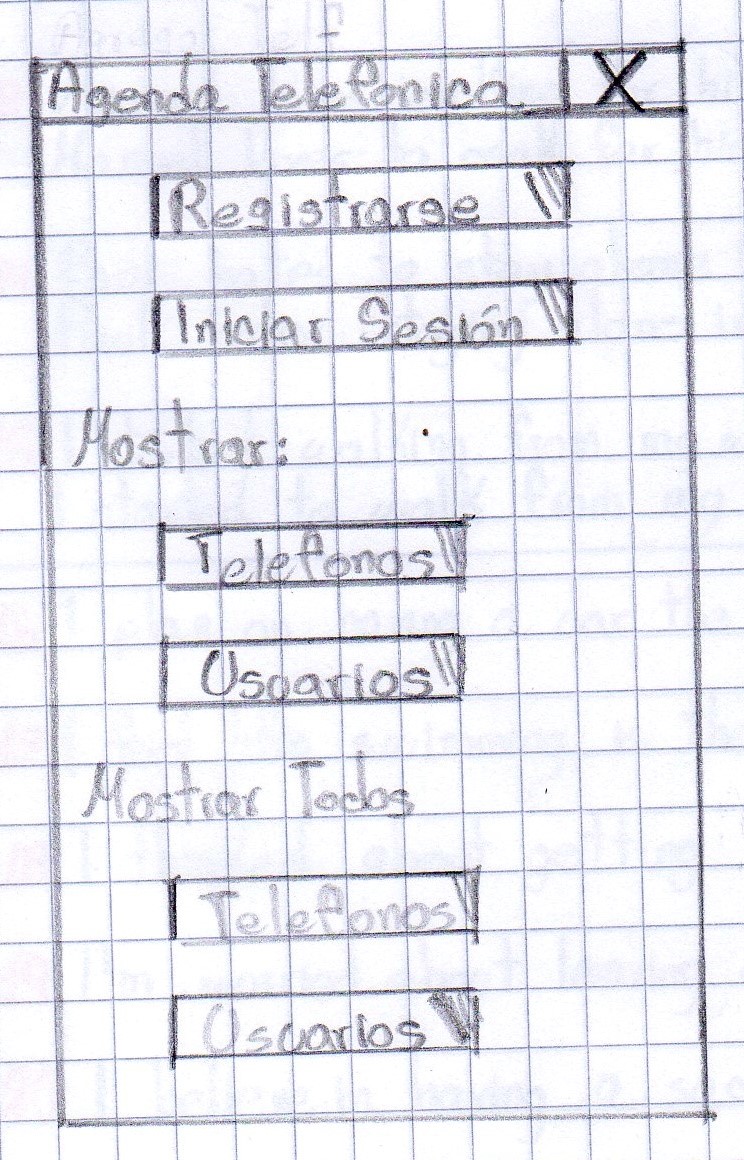 Agenda Telefonica X
Registrarse
Iniciar Sesión
Mostrar:
Telefonos
Usuarios
Mostrar Todos
Telefonos
Usuarios